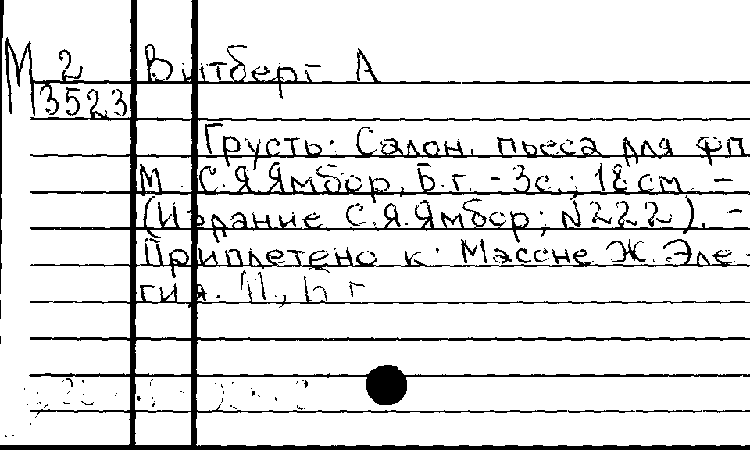 М 2 Витберг А
3523
Грусть: Салон. пьеса для фп
М С.Я.Ямбор, Б.г. - 3с.; 18 см. -
(Издание С.Я.Ямбор; N222). -
Приплетено к: Массне Ж. Эле-
гия. М., Б г